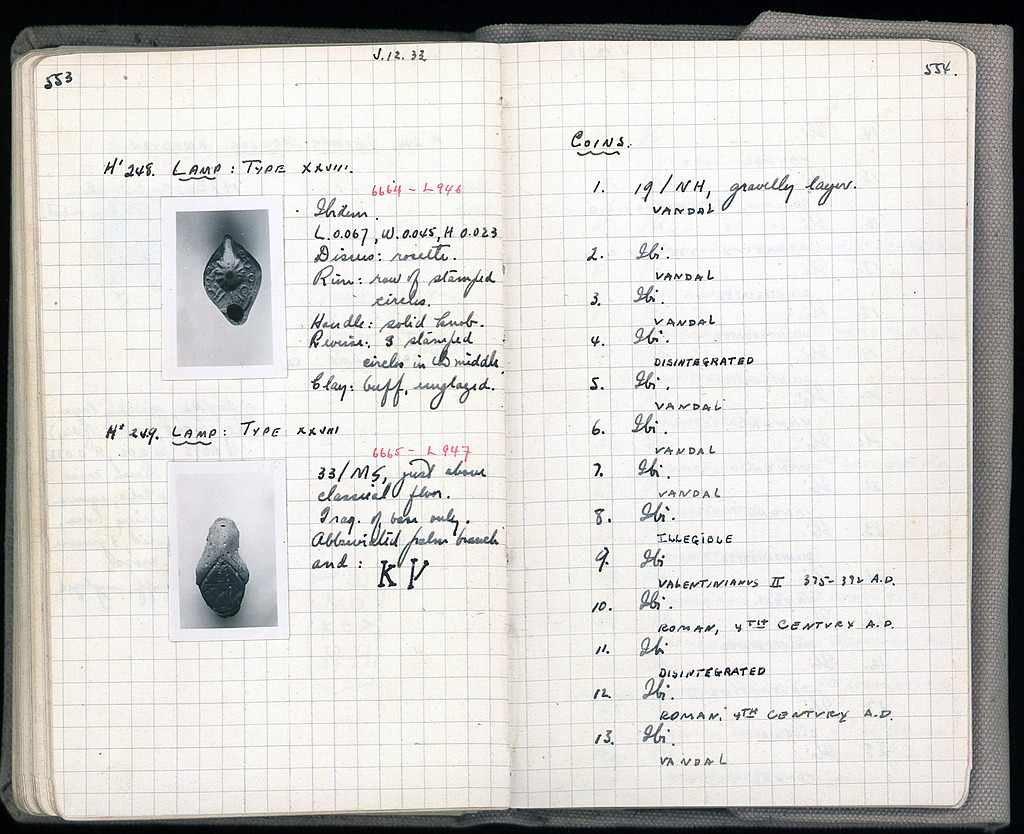 553
V.12.33
H' 248. LAMP: TYPE XXVIII.
6664 - L 946
Ibidem.
L.0.067, W.0.045, H 0.023
Discus: rosette.
Rim: row of stamped
circles.
Handle: solid knob.
Reverse: 3 stamped
circles in middle.
Clay: buff, unglazed.
H' 249. LAMP: TYPE XXVIII
6665 - L 947
33/MS, just above
classical floor.
Frag. of base only.
Abbreviated palm branch
and: K V
554.
COINS.
1. 19/NH, gravelly layer.
VANDAL
2. Ibi.
VANDAL
3. Ibi.
VANDAL
4. Ibi.
DISINTEGRATED
5. Ibi.
VANDAL
6. Ibi.
VANDAL
7. Ibi.
VANDAL
8. Ibi.
ILLEGIBLE
9. Ibi
VALENTINIANUS II 375-392 A.D.
10. Ibi.
ROMAN, 4TH CENTURY A.D.
11. Ibi
DISINTEGRATED
12. Ibi.
ROMAN, 4TH CENTURY A.D.
13. Ibi.
VANDAL